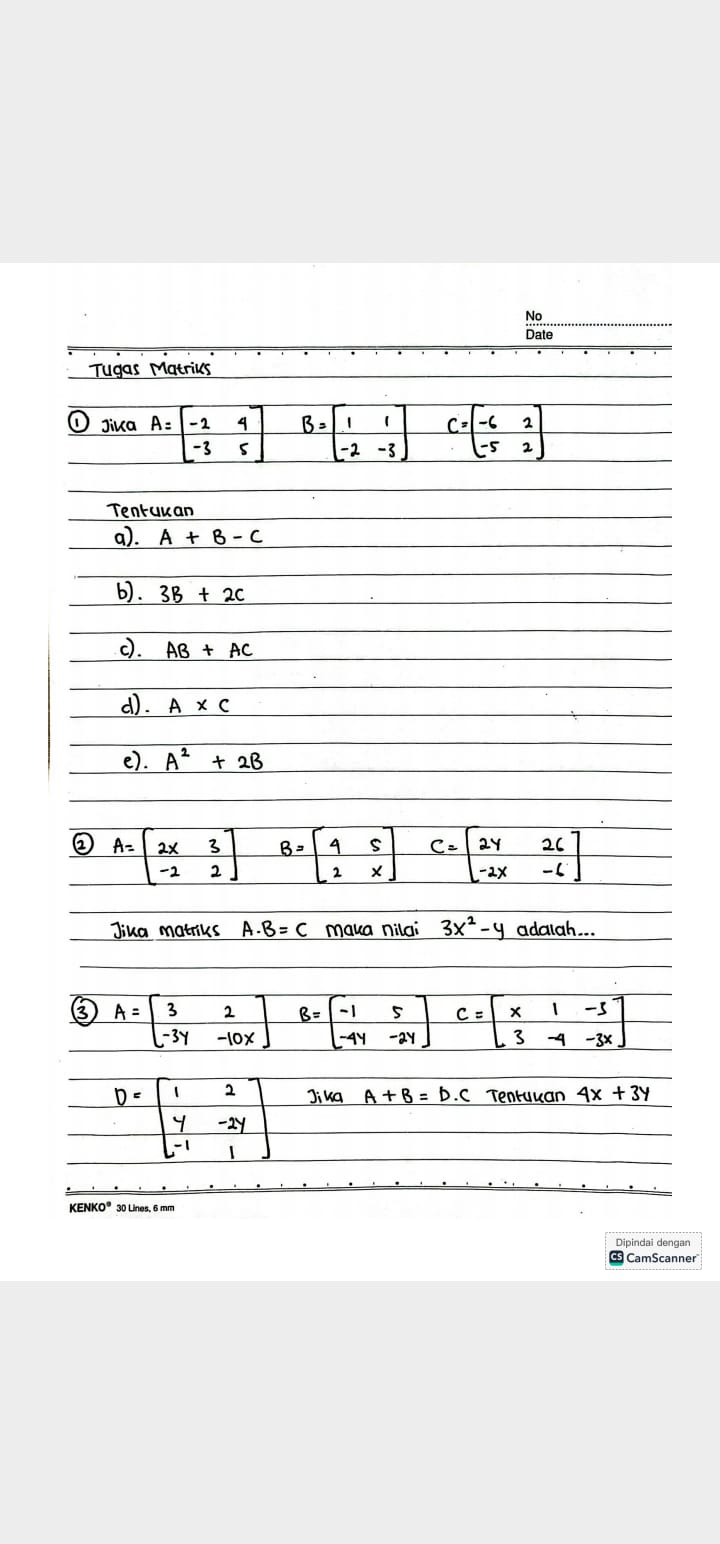 No
Date
Tugas Matriks
① Jika A = [-2 4 B = [1 1 C = [-6 2
-3 5] -2 -3] -5 2]
Tentukan
a). A + B - C
b). 3B + 2C
c). AB + AC
d). A x C
e). A² + 2B
② A = [2x 3 B = [4 5 C = [2y 26
-2 2] 2 x] -2x -6]
Jika matriks A.B = C maka nilai 3x² - y adalah...
③ A = [3 2 B = [-1 5 C = [x 1 -5
-3y -10x] -4y -2y] 3 -4 -3x]
D = [1 2 Jika A + B = D.C Tentukan 4x + 3y
y -2y
-1 1]
KENKO® 30 Lines, 6 mm
Dipindai dengan
CS CamScanner™